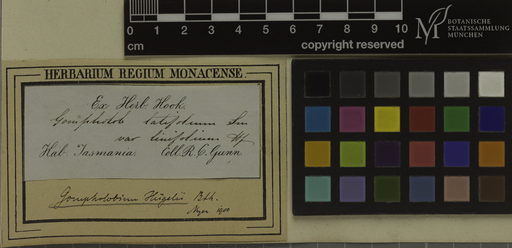 0 1 2 3 4 5 6 7 8 9 10
cm
copyright reserved
BOTANISCHE
STAATSSAMMLUNG
MÜNCHEN
HERBARIUM REGIUM MONACENSE
Ex Herb. Hook.
Gompholob latifolium Sm
var linifolium Hf
Hab. Tasmania. Coll. R. C. Gunn.
Gompholobium Hügelii Bth.
1900